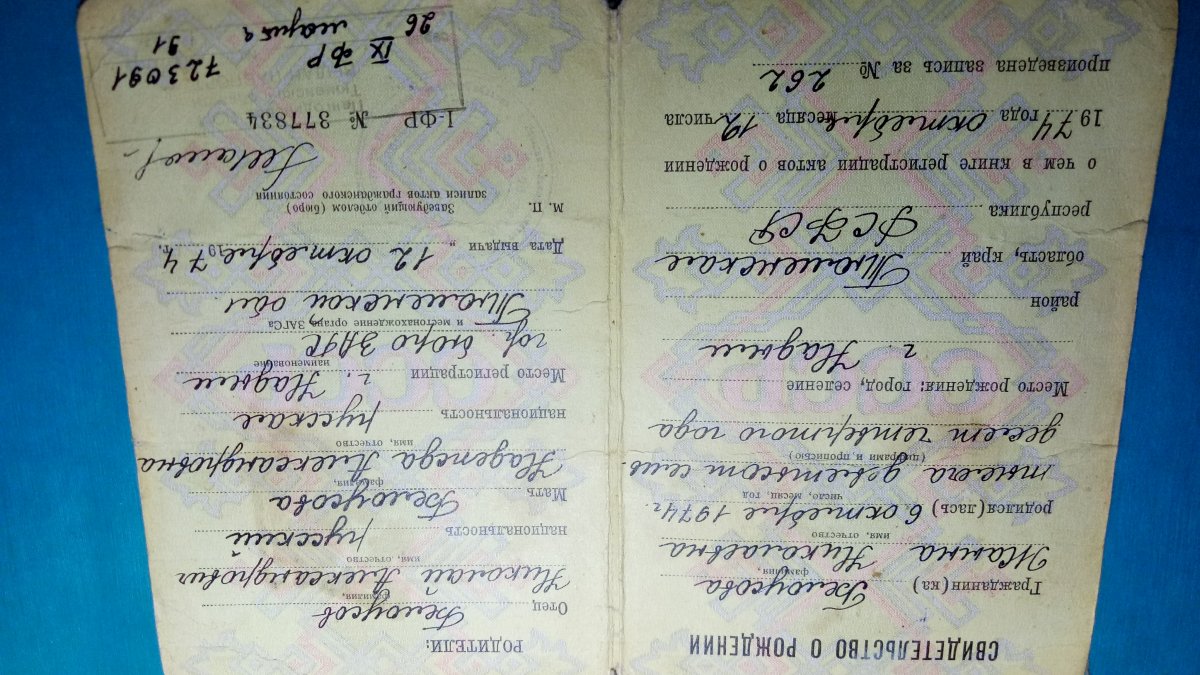 СВИДЕТЕЛЬСТВО О РОЖДЕНИИ
Гражданин(ка) Белоусова
фамилия,
Жанна Николаевна
имя, отчество
родился(лась) 6 октября 1974 г.
число, месяц, год
тысяча девятьсот семь-
(цифрами и прописью)
десят четвертого года
Место рождения: город, селение
г. Надым
район
область, край Тюменская
республика РСФСР
о чем в книге регистрации актов о рождении
1974 года октября месяца 12 числа
произведена запись за № 262
РОДИТЕЛИ:
Отец Белоусов
фамилия,
Николай Александрович
имя, отчество
национальность русский
Мать Белоусова
фамилия,
Надежда Александровна
имя, отчество
национальность русская
Место регистрации г. Надым
наименование
гор. бюро ЗАГС
и местонахождение органа ЗАГСа
Тюменской обл.
Дата выдачи „ 12 октября 1974 г.
М. П. Заведующий отделом (бюро)
записи актов гражданского состояния
I-ФР № 377834
723091
91
IX ФР
26 марта